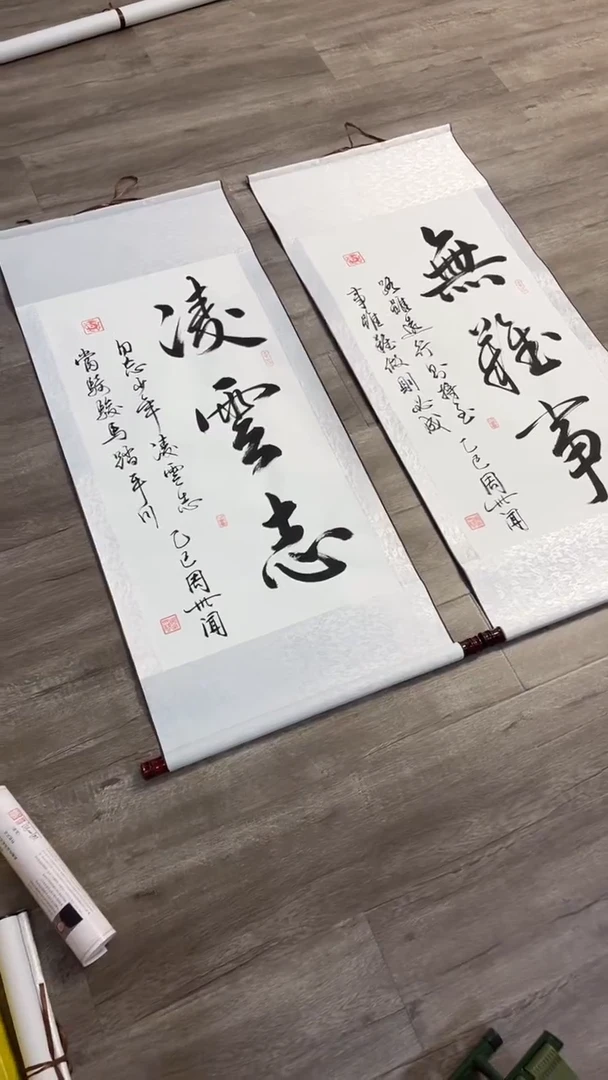 凌雲志
少年凌雲志
當騎駿馬踏平川
乙巳周世聞
無難事
路雖遠行則將至
事雖難做則必成
乙巳周世聞